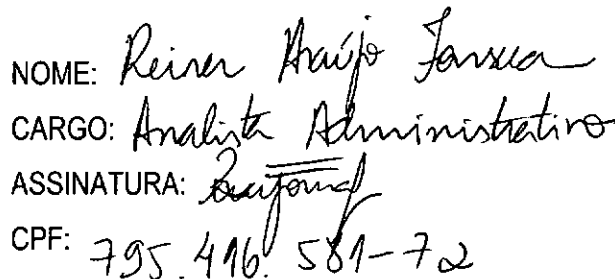 NOME: Reiner Araújo Fonseca
CARGO: Analista Administrativo
ASSINATURA:
CPF: 795.416.581-72